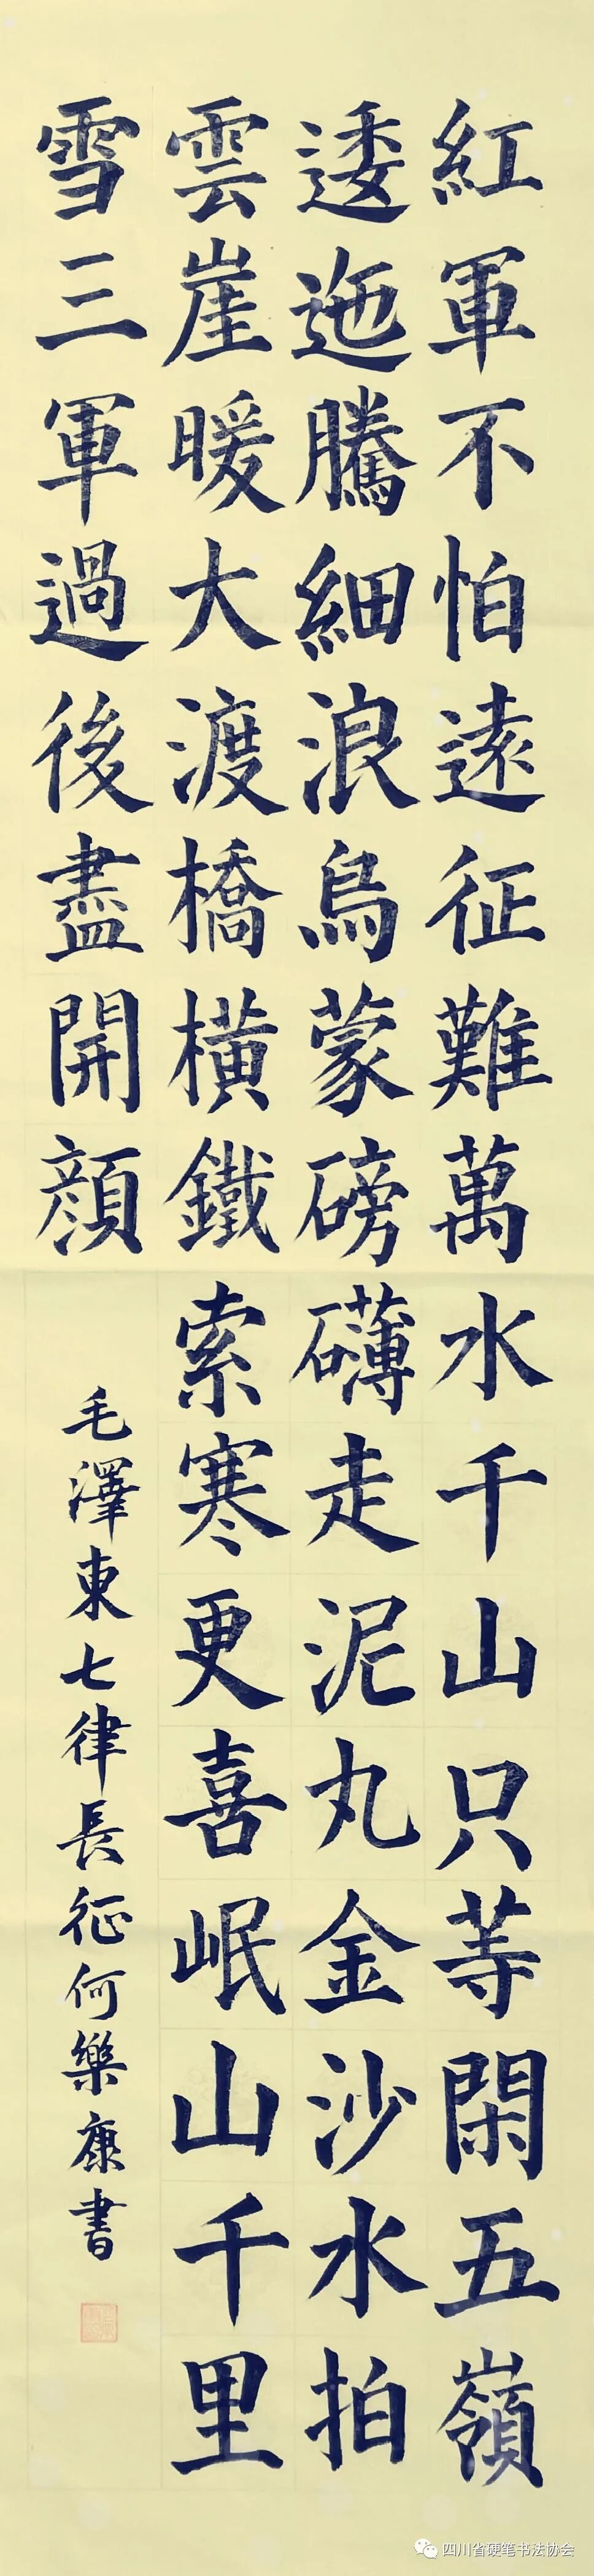 紅軍不怕遠征難萬水千山只等閑五嶺
逶迤騰細浪烏蒙磅礴走泥丸金沙水拍
雲崖暖大渡橋橫鐵索寒更喜岷山千里
雪三軍過後盡開顔
毛澤東七律長征何樂康書
四川省硬笔书法协会